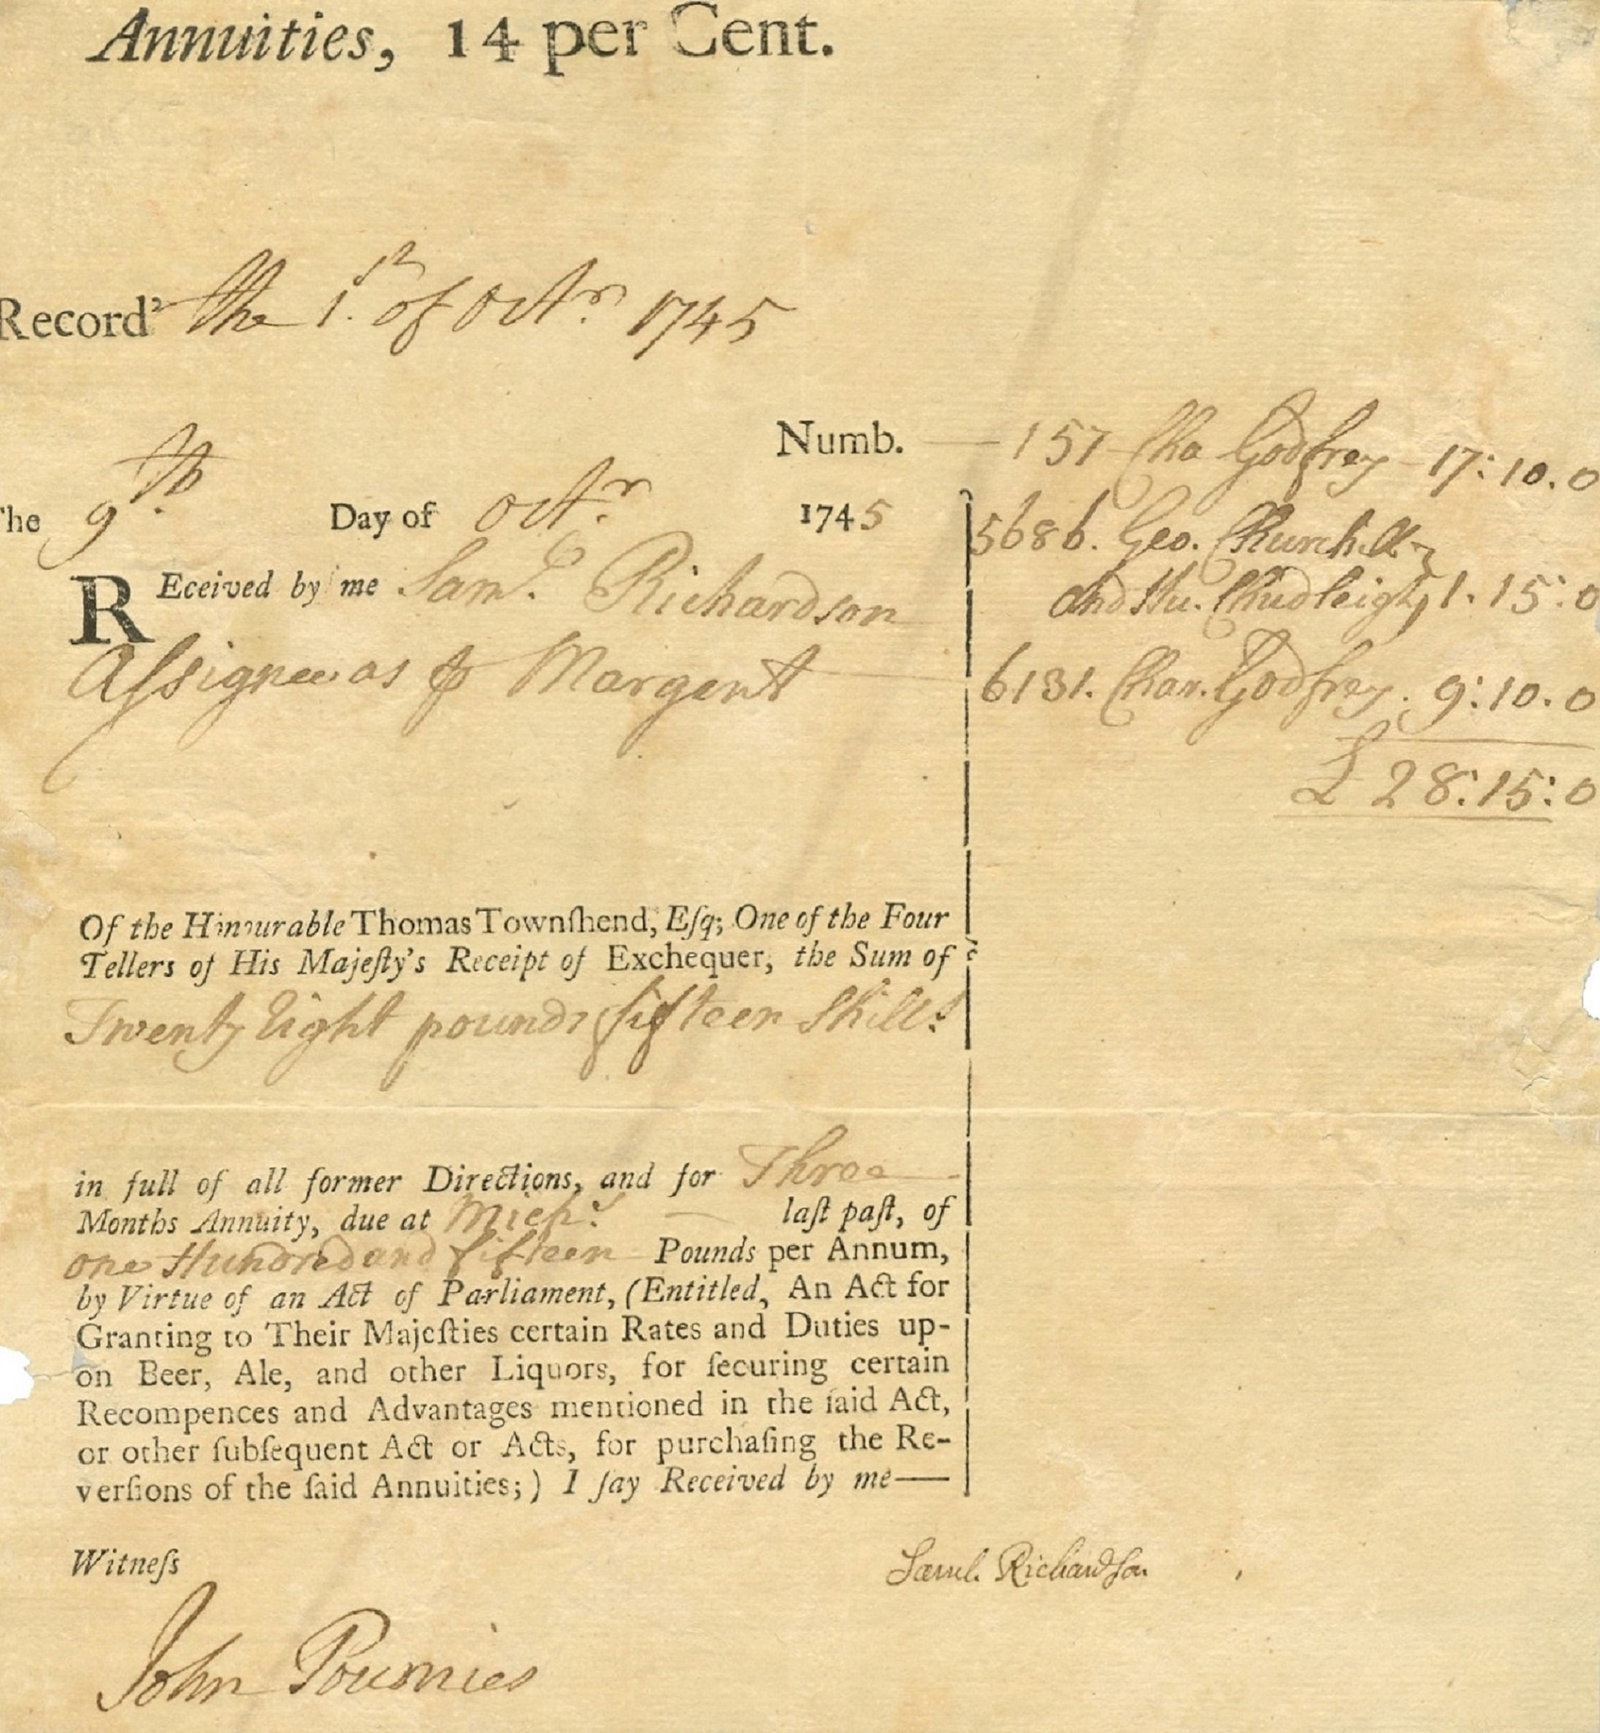 Annuities, 14 per Cent.
Record^d the 1st of Octr. 1745
Numb. 157 Cha Godfrey 17:10.0
The 9th. Day of Octr. 1745
5686. Geo. Churchill
and Hu. Chudleigh 1.15:0
REceived by me Saml. Richardson
Assignee as ⅌ Margent
6131. Char. Godfrey. 9:10.0
£ 28:15:0
Of the Honourable Thomas Townſhend, Eſq; One of the Four
Tellers of His Majeſty's Receipt of Exchequer, the Sum of
Twenty Eight pounds fifteen Shills.
in full of all former Directions, and for Three
Months Annuity, due at Michs. laſt paſt, of
one Hundred and fifteen Pounds per Annum,
by Virtue of an Act of Parliament, (Entitled, An Act for
Granting to Their Majeſties certain Rates and Duties up-
on Beer, Ale, and other Liquors, for ſecuring certain
Recompences and Advantages mentioned in the ſaid Act,
or other ſubſequent Act or Acts, for purchaſing the Re-
verſions of the ſaid Annuities;) I ſay Received by me——
Witneſs
Saml. Richardson
John